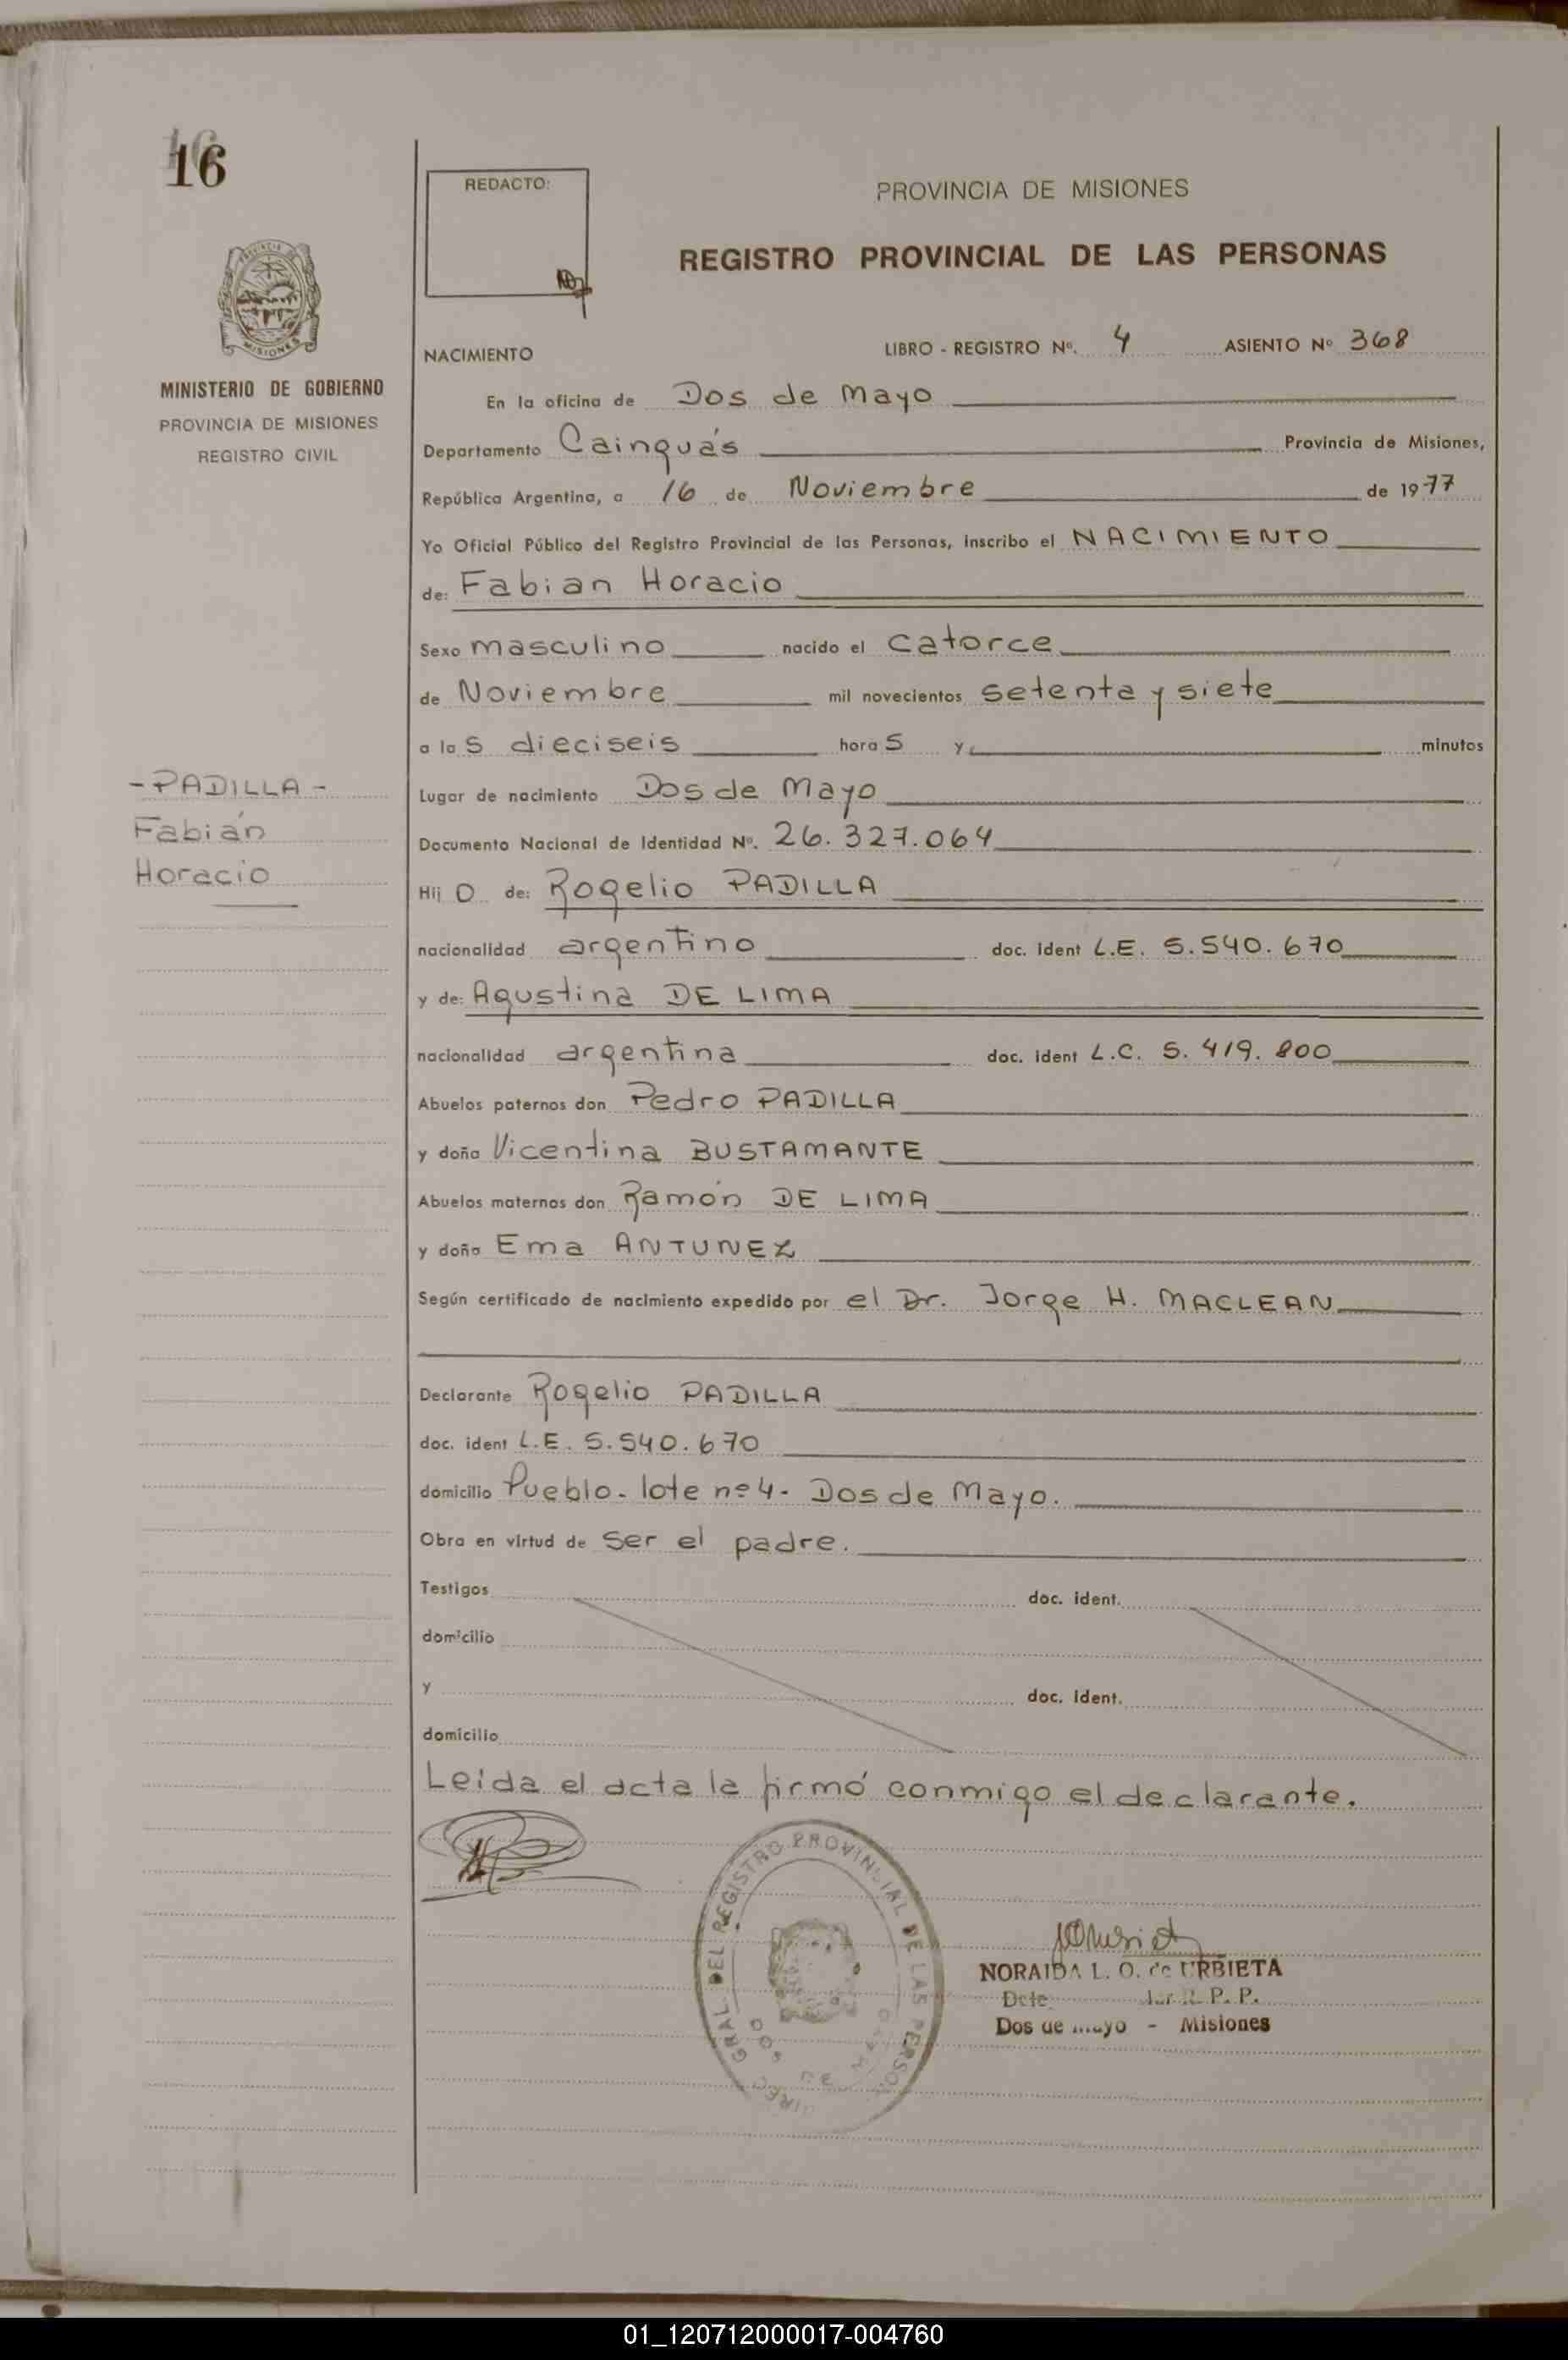 16
REDACTO:
PROVINCIA DE MISIONES
REGISTRO PROVINCIAL DE LAS PERSONAS
PROVINCIA DE
MISIONES
MINISTERIO DE GOBIERNO
PROVINCIA DE MISIONES
REGISTRO CIVIL
NACIMIENTO
LIBRO - REGISTRO Nº. 4 ASIENTO Nº 368
En la oficina de Dos de Mayo
Departamento Cainguás Provincia de Misiones,
República Argentina, a 16 de Noviembre de 1977
Yo Oficial Público del Registro Provincial de las Personas, inscribo el NACIMIENTO
de: Fabian Horacio
Sexo masculino nacido el catorce
de Noviembre mil novecientos setenta y siete
a las dieciseis horas y minutos
- PADILLA -
Fabián
Horacio
Lugar de nacimiento Dos de Mayo
Documento Nacional de Identidad Nº. 26.327.064
Hijo de: Rogelio PADILLA
nacionalidad argentino doc. ident L.E. 5.540.670
y de: Agustina DE LIMA
nacionalidad argentina doc. ident L.C. 5.419.800
Abuelos paternos don Pedro PADILLA
y doña Vicentina BUSTAMANTE
Abuelos maternos don Ramón DE LIMA
y doña Ema ANTUNEZ
Según certificado de nacimiento expedido por el Dr. Jorge H. MACLEAN
Declarante Rogelio PADILLA
doc. ident L.E. 5.540.670
domicilio Pueblo - lote nº 4 - Dos de Mayo.
Obra en virtud de ser el padre.
Testigos doc. ident.
domicilio
y doc. ident.
domicilio
Leida el acta la firmó conmigo el declarante.
GRAL DEL REGISTRO PROVINCIAL DE LAS PERSON
NORAIDA L. O. de URBIETA
R. P. P.
Dos de Mayo - Misiones
01_120712000017-004760